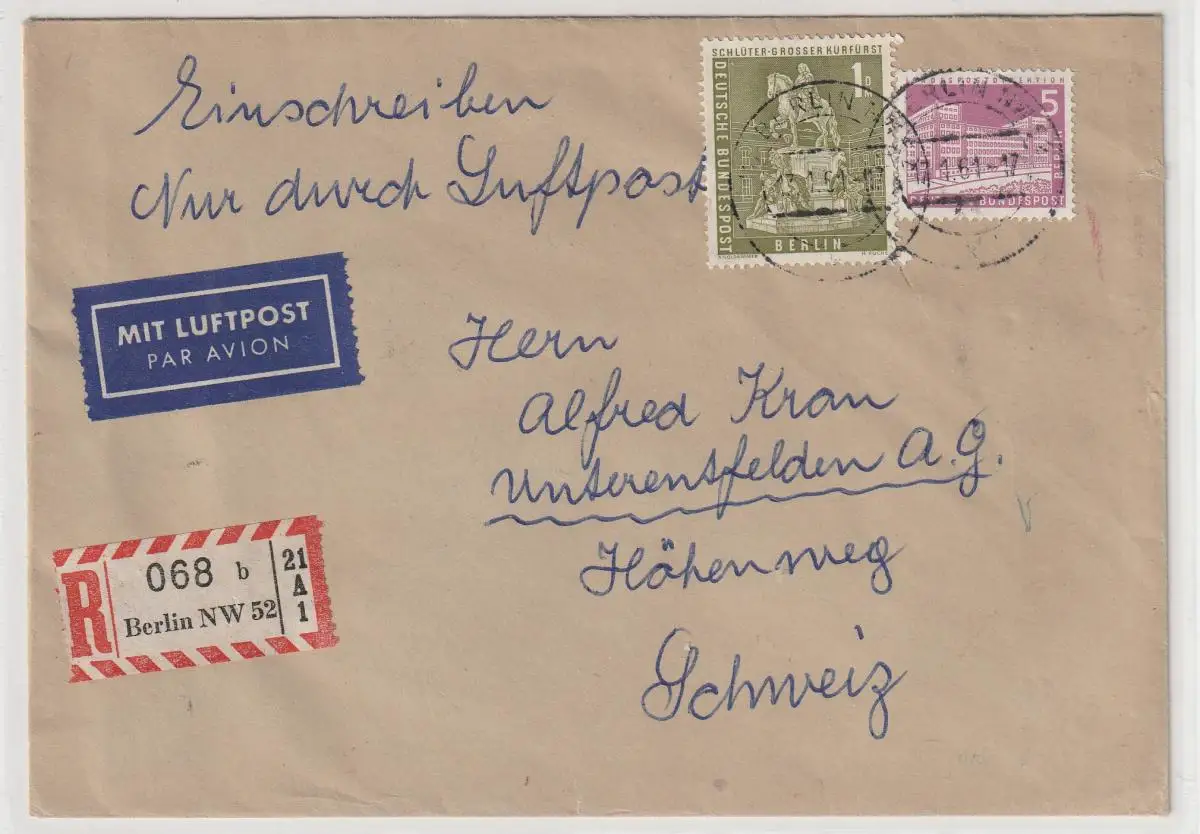 Einschreiben
Nur durch Luftpost
SCHLÜTER-GROSSER KURFÜRST
1 D
DEUTSCHE BUNDESPOST
BERLIN
5
BUNDESPOST
BERLIN
MIT LUFTPOST
PAR AVION
Herrn
Alfred Kron
Unterentfelden A.G.
Höhenweg
Schweiz
R
068 b
Berlin NW 52
21
A
1